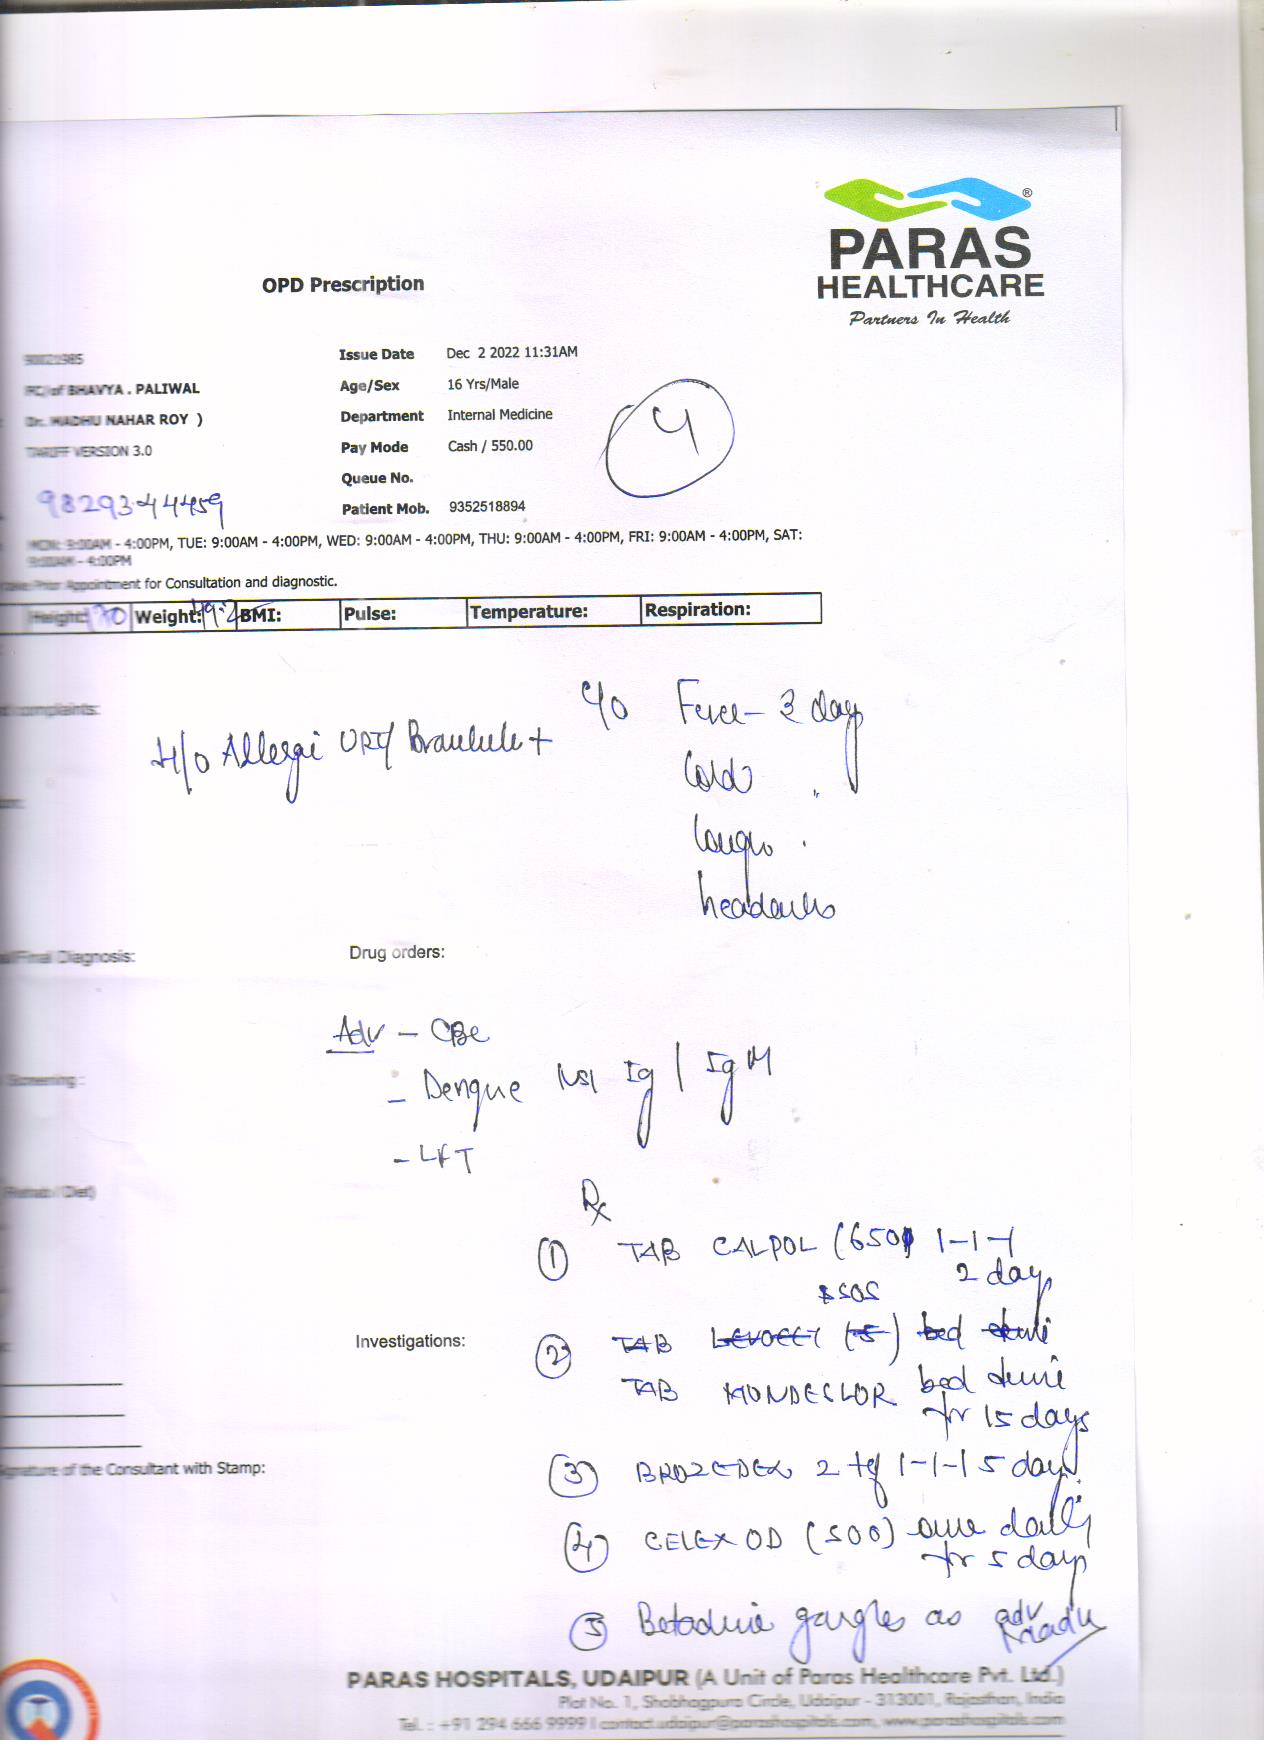 PARAS
HEALTHCARE
Partners In Health
®
OPD Prescription
90021985
Issue Date Dec 2 2022 11:31AM
of BHAVYA . PALIWAL
Age/Sex 16 Yrs/Male
Dr. MADHU NAHAR ROY )
Department Internal Medicine
TARIFF VERSION 3.0
Pay Mode Cash / 550.00
Queue No.
9829344459
Patient Mob. 9352518894
4
MON: 9:00AM - 4:00PM, TUE: 9:00AM - 4:00PM, WED: 9:00AM - 4:00PM, THU: 9:00AM - 4:00PM, FRI: 9:00AM - 4:00PM, SAT:
9:00AM - 4:00PM
Prior Appointment for Consultation and diagnostic.
Height: Weight: 49.2 BMI: Pulse: Temperature: Respiration:
complaints:
C/O Fever - 3 day
H/O Allergi URTI +
Cold "
Cough "
headache
Final Diagnosis:
Drug orders:
Adv - CBC
- Dengue NS1 Ig / IgM
Screening :
- LFT
Rehab / Diet)
Rx
① TAB CALPOL (650) 1-1-1
2 day
SOS
Investigations:
② TAB LEVOCET (5) bed time
TAB MONDESLOR bed time
for 15 days
Signature of the Consultant with Stamp:
③ BROZEDEX 2 tsf 1-1-1 5 day
④ CELEX OD (500) one daily
for 5 day
⑤ Betadine gargles as adv
Madhu
PARAS HOSPITALS, UDAIPUR (A Unit of Paras Healthcare Pvt. Ltd.)
Plot No. 1, Shobhagpura Circle, Udaipur - 313001, Rajasthan, India
Tel. : +91 294 666 9999 I contact.udaipur@parashospitals.com, www.parashospitals.com